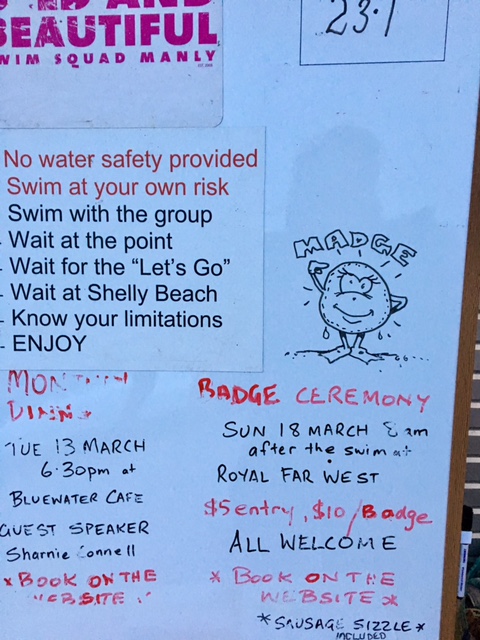 BEAUTIFUL
SWIM SQUAD MANLY
23.1
No water safety provided
Swim at your own risk
Swim with the group
- Wait at the point
- Wait for the “Let's Go”
- Wait at Shelly Beach
- Know your limitations
- ENJOY
MADGE
MONTHLY
DINN
TUE 13 MARCH
6.30pm at
BLUEWATER CAFE
GUEST SPEAKER
Sharnie Connell
* BOOK ON THE
WEBSITE
BADGE CEREMONY
SUN 18 MARCH 8am
after the swim at
ROYAL FAR WEST
$5 entry, $10/Badge
ALL WELCOME
* BOOK ON THE
WEBSITE *
* SAUSAGE SIZZLE *
INCLUDED